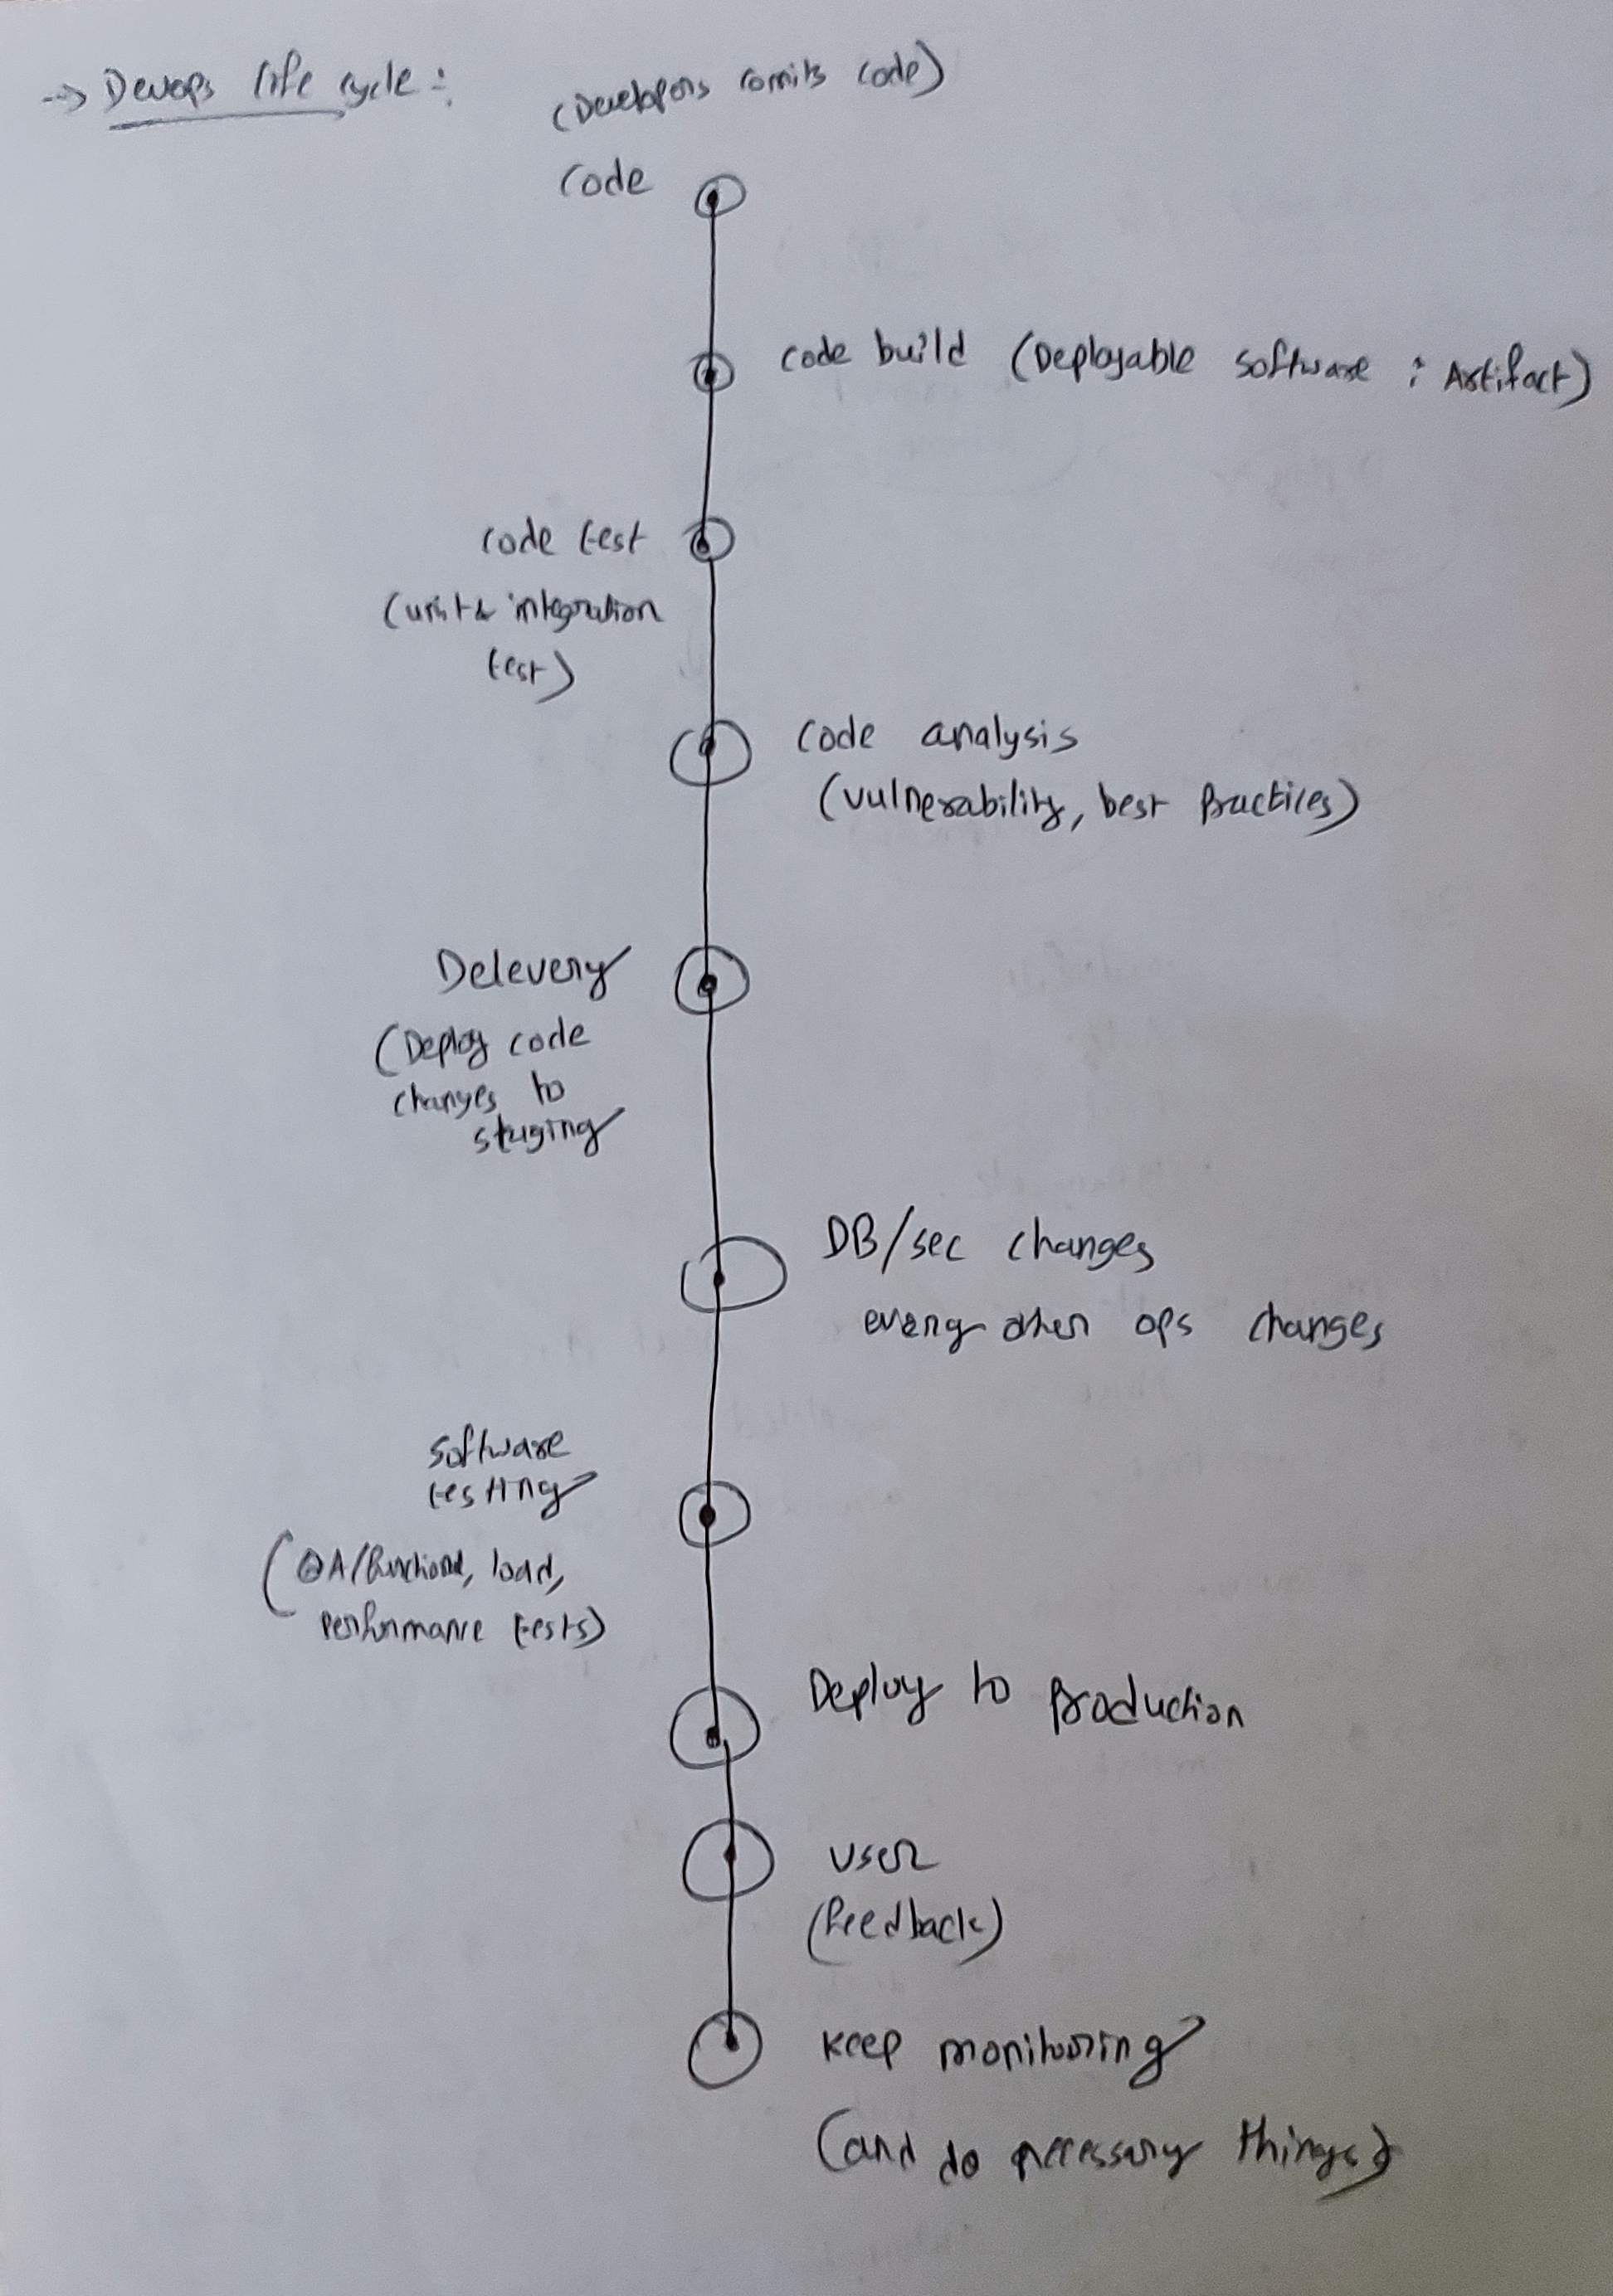 --> Devops life cycle :
(Developers comits code)
code
code build (Deployable software : Artifact)
code test
(unit & integration
test)
code analysis
(vulnerability, best practices)
Delevery
(Deploy code
changes to
staging
DB/sec changes
every other ops changes
software
testing
(QA/functional, load,
performance tests)
Deploy to production
user
(feedback)
keep monitoring
(and do necessary things)